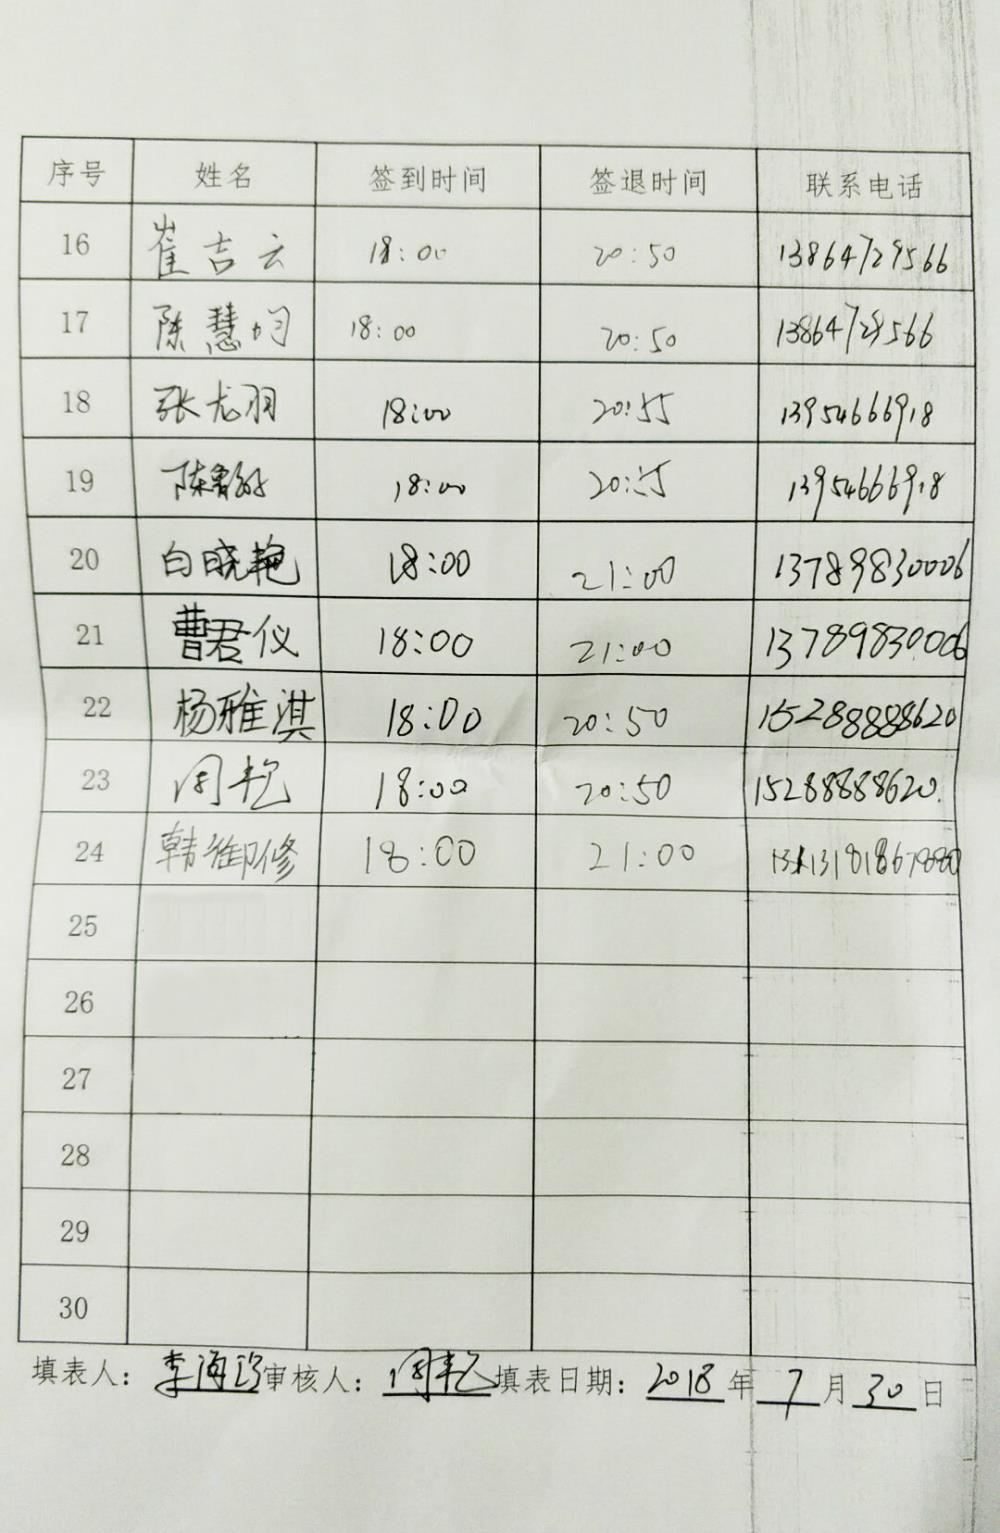 序号 姓名 签到时间 签退时间 联系电话
16 崔吉云 18:00 20:50 13864729566
17 陈慧均 18:00 20:50 13864729566
18 张龙羽 18:00 20:55 13954666918
19 18:00 20:55 13954666918
20 白晓艳 18:00 21:00 13789830006
21 曹君仪 18:00 21:00 13789830006
22 杨雅淇 18:00 20:50 15288888620
23 周艳 18:00 20:50 15288888620.
24 韩御修 18:00 21:00
25
26
27
28
29
30
填表人: 李海玲 审核人: 周艳 填表日期: 2018 年 7 月 30 日